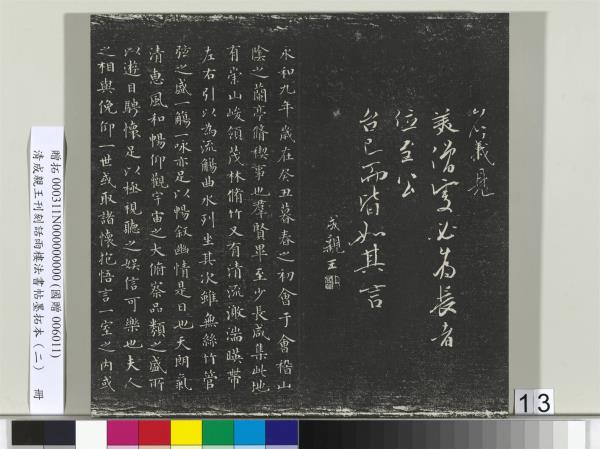 義
必為長者
位至公
台已而皆如其言
成親王
永和九年歲在癸丑暮春之初會于會稽山
陰之蘭亭脩禊事也羣賢畢至少長咸集此地
有崇山峻領茂林脩竹又有清流激湍暎帶
左右引以為流觴曲水列坐其次雖無絲竹管
弦之盛一觴一詠亦足以暢敘幽情是日也天朗氣
清惠風和暢仰觀宇宙之大俯察品類之盛所
以遊目騁懷足以極視聽之娛信可樂也夫人
之相與俛仰一世或取諸懷抱悟言一室之內或
贈拓 000311N000000000 (國贈 006011)
清成親王刊刻話雨樓法書帖墨拓本（二） 冊
13